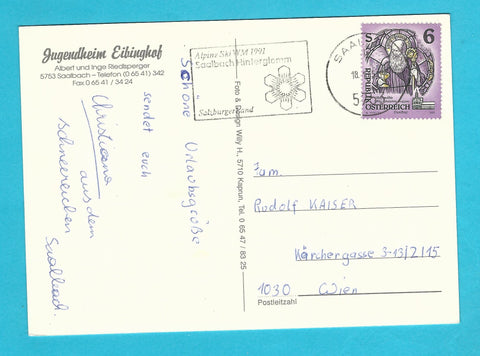 Jugendheim Eibinghof
Albert und Inge Riedlsperger
5753 Saalbach – Telefon (0 65 41) 342
Fax 0 65 41 / 34 24
Alpine Ski WM 1991
Saalbach-Hinterglemm
Salzburger Land
SAAL
18.
5
S 6
REPUBLIK
ÖSTERREICH
Schöne Urlaubsgrüße
sendet euch
Christiana
aus dem
schneereichen
Saalbach.
Foto & Design Willy H., 5710 Kaprun, Tel. 0 65 47 / 83 25
Fam.
Rudolf KAISER
Kärchergasse 3-13/2/15
1030 Wien
Postleitzahl